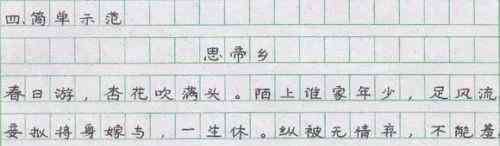 四.简单示范
思帝乡
春日游，杏花吹满头。陌上谁家年少，足风流
妾拟将身嫁与，一生休。纵被无情弃，不能羞